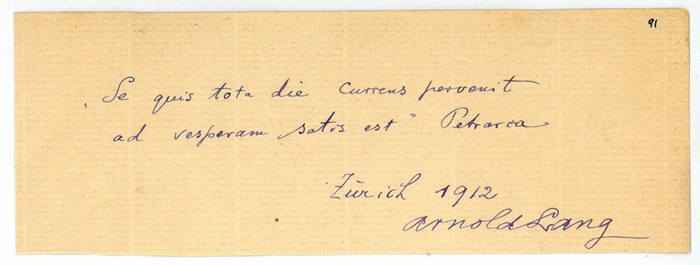 91
„Se quis tota die currens pervenit
ad vesperam satis est" Petrarca
Zürich 1912
Arnold Lang